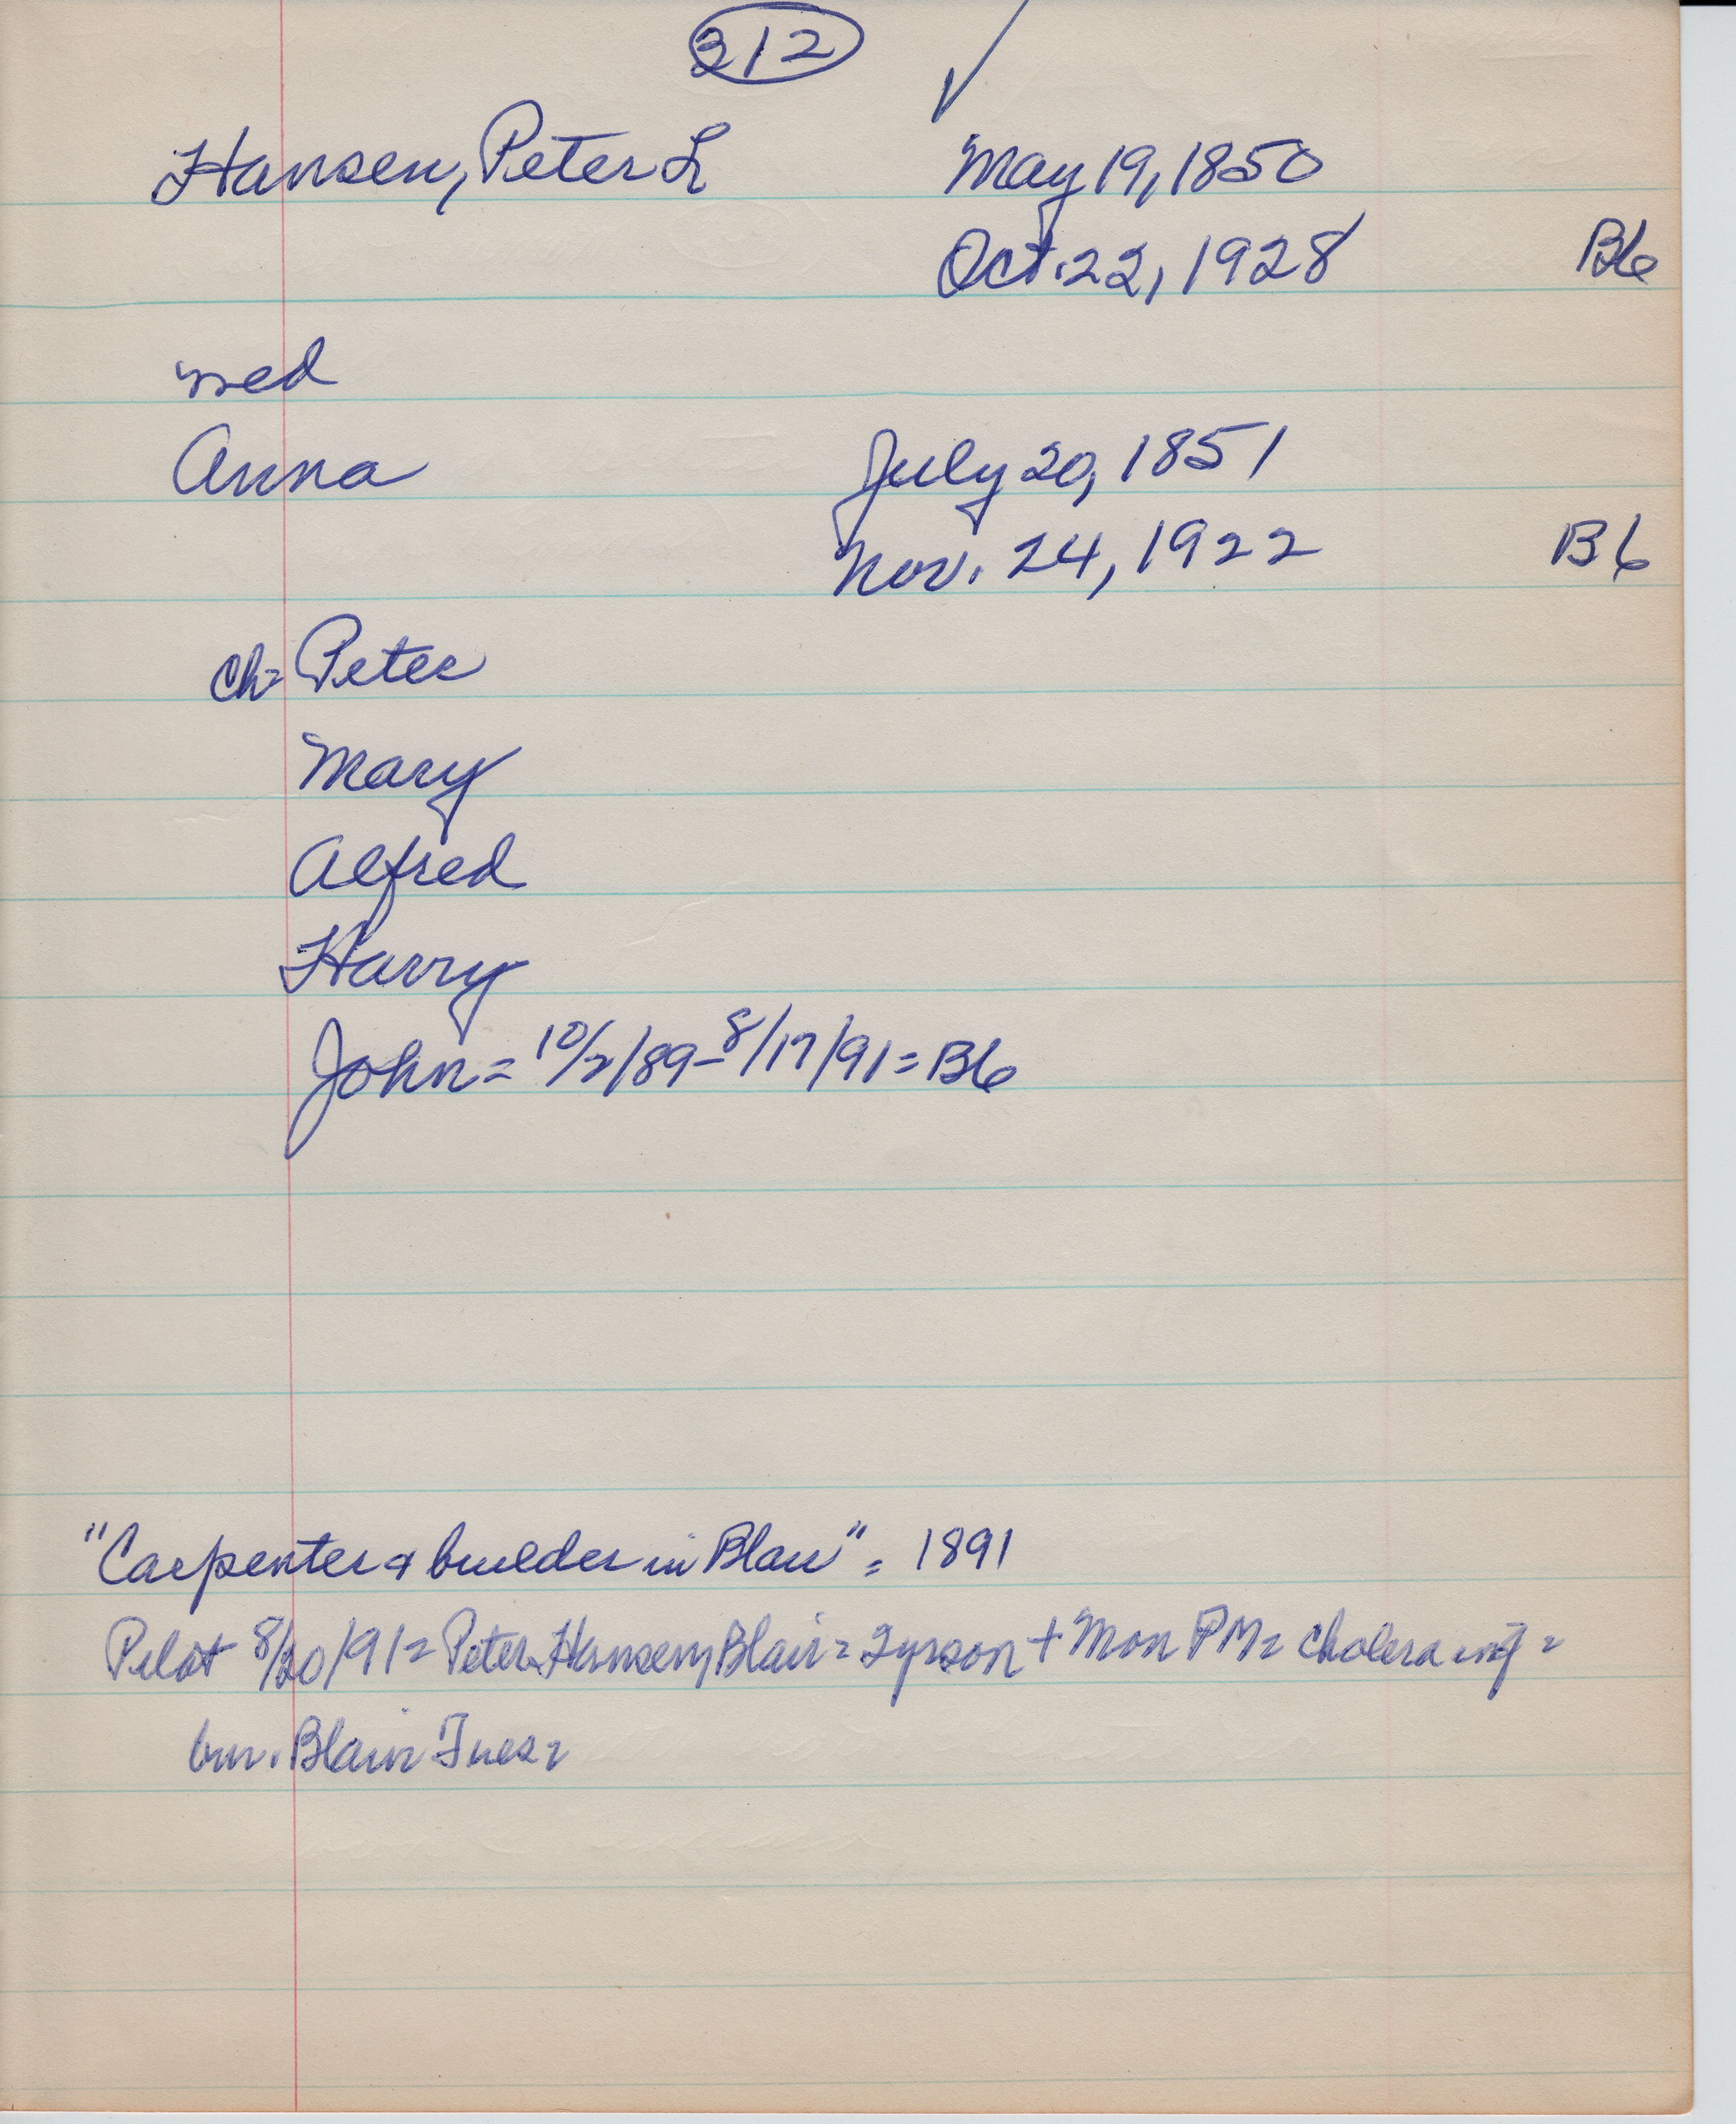 312 ✓
Hansen, Peter L May 19, 1850
Oct. 22, 1928 Bb
med
Anna July 20, 1851
Nov. 24, 1922 Bb
ch= Peter
Mary
Alfred
Harry
John= 10/2/89-8/17/91= Bb
"Carpenter & builder in Blair" = 1891
Pilot 8/20/91= Peter Hansen, Blair= 2yrson + Mon PM= cholera inf=
bur. Blair Tues=